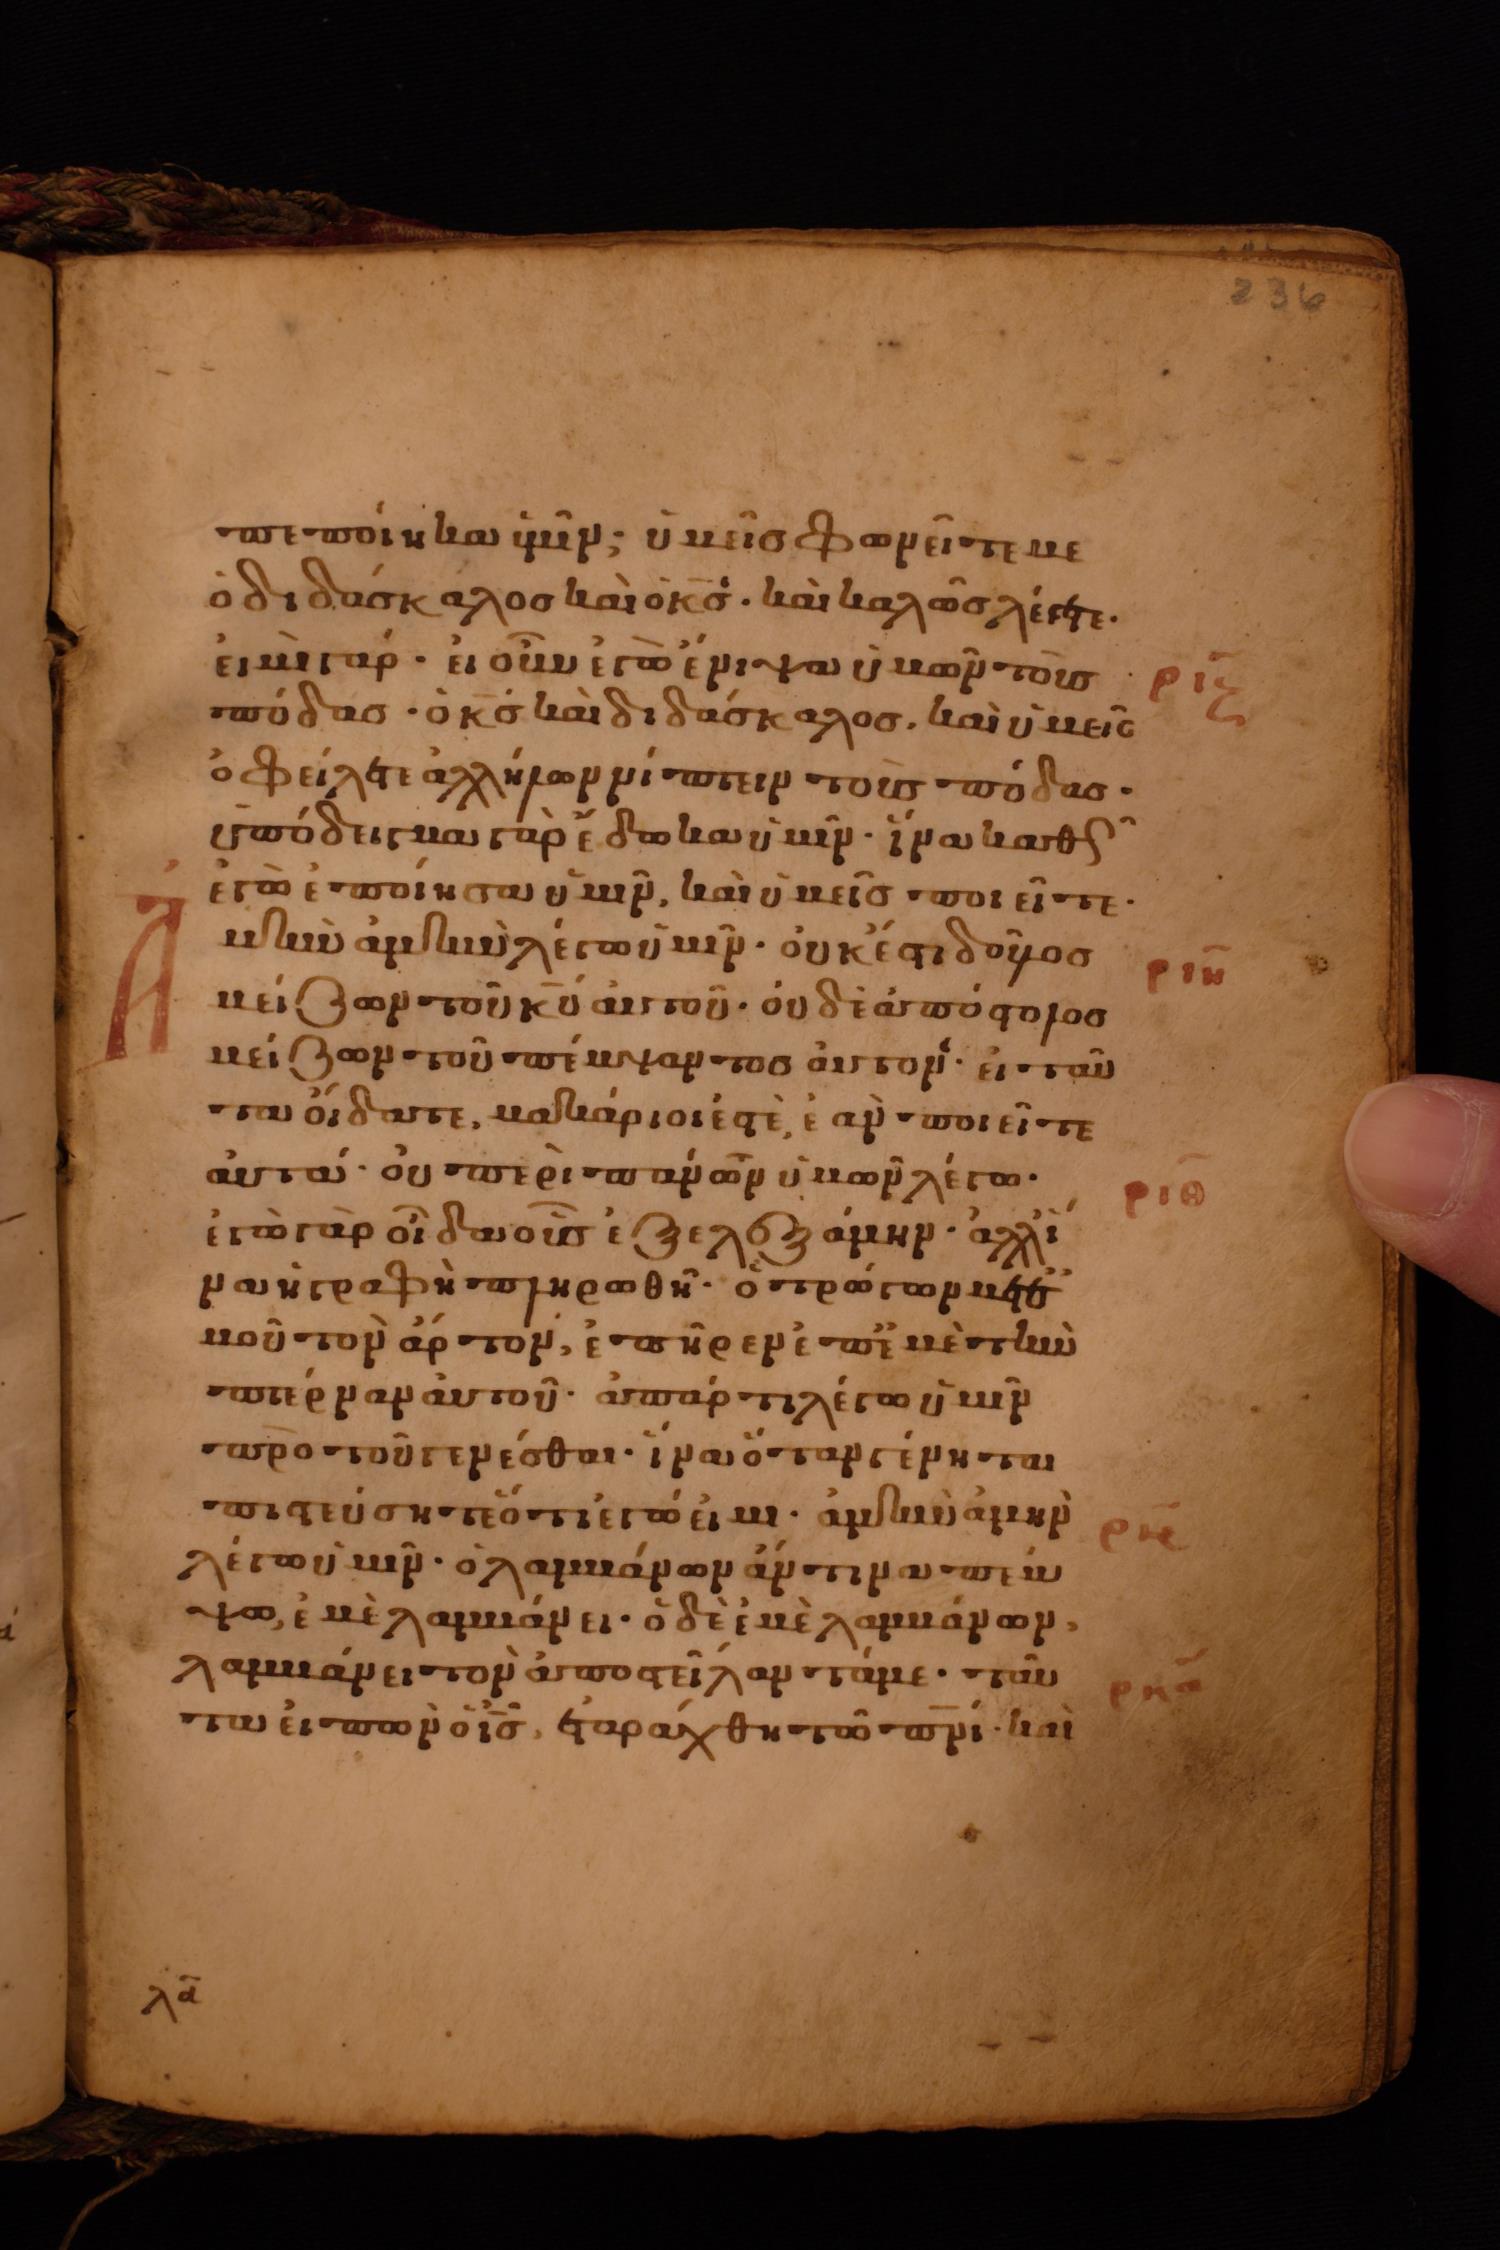 236
πεποίηκα ὑμῖν; ὑμεῖς φωνεῖτε με
ὁ διδάσκαλος καὶ ὁ κ̅ς̅· καὶ καλῶς λέγετε·
εἰμὶ γάρ· εἰ οὖν ἐγὼ ἔνιψα ὑμῶν τοὺς
ριζ
πόδας· ὁ κ̅ς̅ καὶ διδάσκαλος, καὶ ὑμεῖς
ὀφείλετε ἀλλήλων νίπτειν τοὺς πόδας·
ὑπόδειγμα γὰρ ἔδωκα ὑμῖν· ἵνα καθὼς
ἐγὼ ἐποίησα ὑμῖν, καὶ ὑμεῖς ποιεῖτε·
Ἀμὴν ἀμὴν λέγω ὑμῖν· οὐκ ἔστι δοῦλος
ριη
μείζων τοῦ κ̅υ̅ αὐτοῦ· οὐδὲ ἀπόστολος
μείζων τοῦ πέμψαντος αὐτόν· εἰ ταῦ
τα οἴδατε, μακάριοί ἐστὲ, ἐὰν ποιεῖτε
αὐτά· οὐ περὶ πάντων ὑμῶν λέγω·
ριθ
ἐγὼ γὰρ οἶδα οὓς ἐξελεξάμην· ἀλλ' ἵ
να ἡ γραφὴ πληρωθῇ· ὁ τρώγων μετ' ἐ
μοῦ τὸν ἄρτον, ἐπῆρεν ἐπ' ἐμὲ τὴν
πτέρναν αὐτοῦ· ἀπάρτι λέγω ὑμῖν
πρὸ τοῦ γενέσθαι· ἵνα ὅταν γένηται
πιστεύσητε ὅτι ἐγώ εἰμι· ἀμὴν ἀμὴν
ρκ
λέγω ὑμῖν· ὁ λαμβάνων ἄν τινα πέμ
ψω, ἐμὲ λαμβάνει· ὁ δὲ ἐμὲ λαμβάνων,
λαμβάνει τὸν ἀποστείλαντά με· ταῦ
ρκα
τα εἰπὼν ὁ ι̅ς̅, ἐταράχθη τῷ π̅ν̅ι̅· καὶ
λα